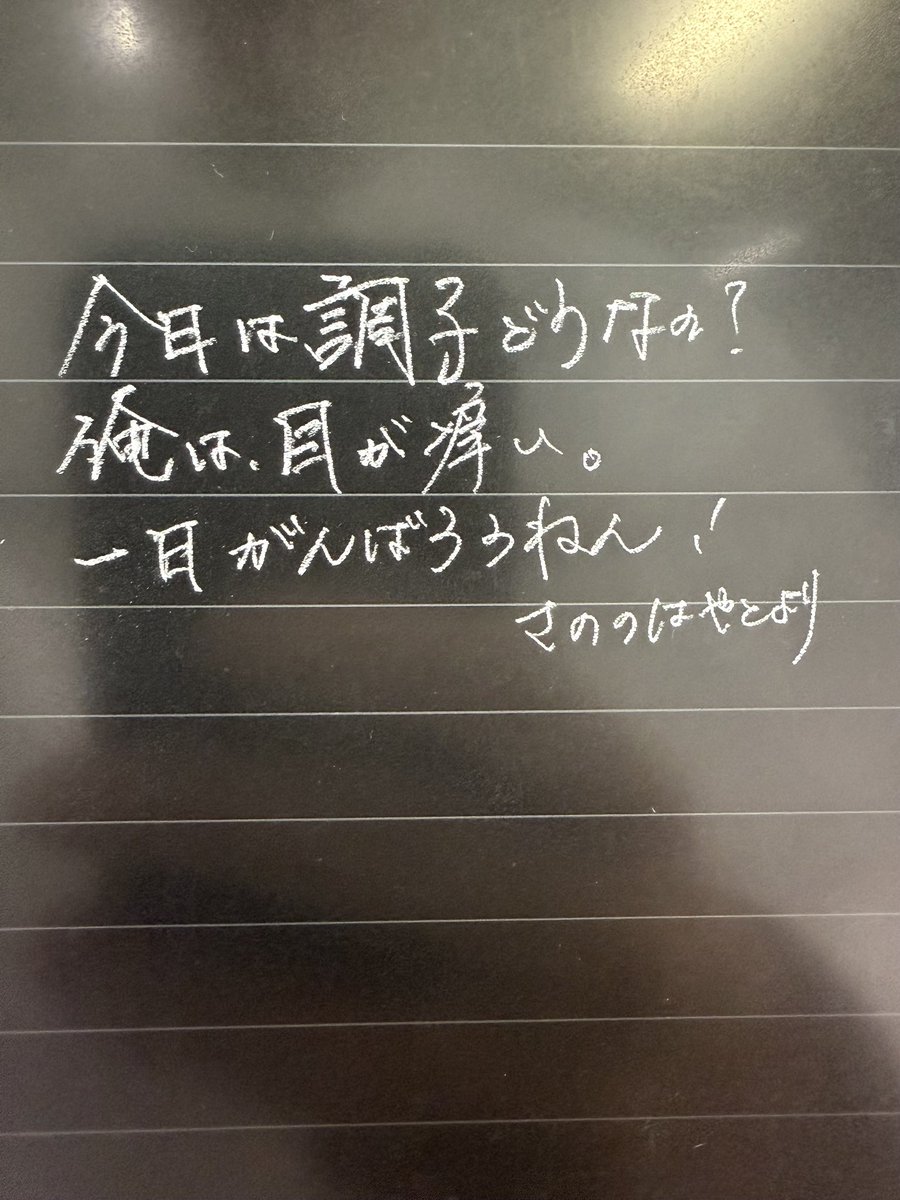 今日は調子どうなの?
俺は、目が痒い。
一日がんばろうねん!
さののはやとより